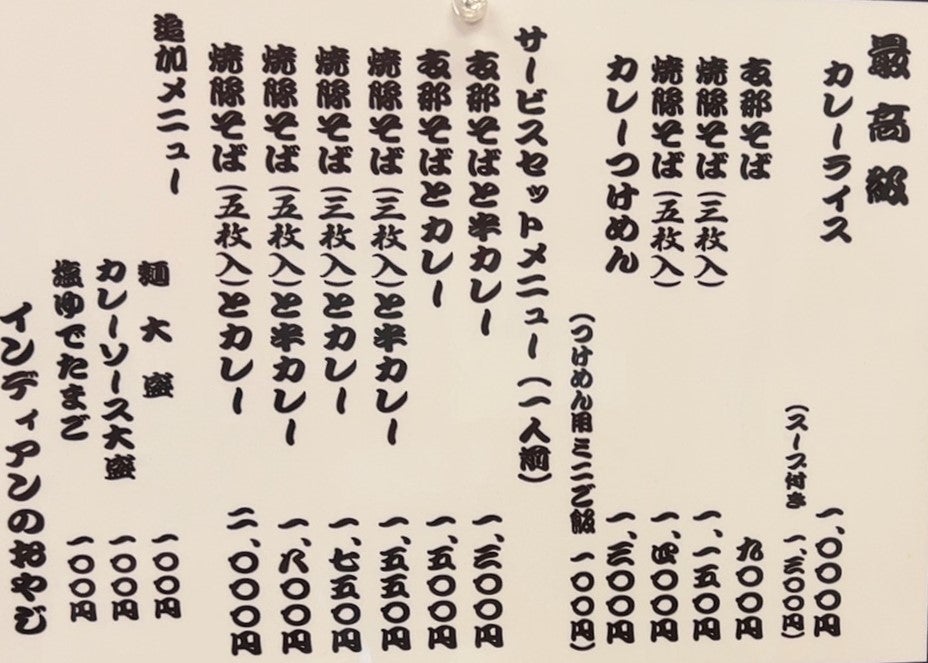 最高級
カレーライス 一、〇〇〇円
（スープ付き 一、三〇〇円）
支那そば 九〇〇円
焼豚そば（三枚入） 一、一五〇円
焼豚そば（五枚入） 一、四〇〇円
カレーつけめん 一、三〇〇円
（つけめん用ミニご飯 一〇〇円）
サービスセットメニュー（一人前）
支那そばと半カレー 一、三〇〇円
支那そばとカレー 一、五〇〇円
焼豚そば（三枚入）と半カレー 一、五五〇円
焼豚そば（三枚入）とカレー 一、七五〇円
焼豚そば（五枚入）と半カレー 一、八〇〇円
焼豚そば（五枚入）とカレー 二、〇〇〇円
追加メニュー
麺大盛 一〇〇円
カレーソース大盛 一〇〇円
塩ゆでたまご 一〇〇円
インディアンのおやじ